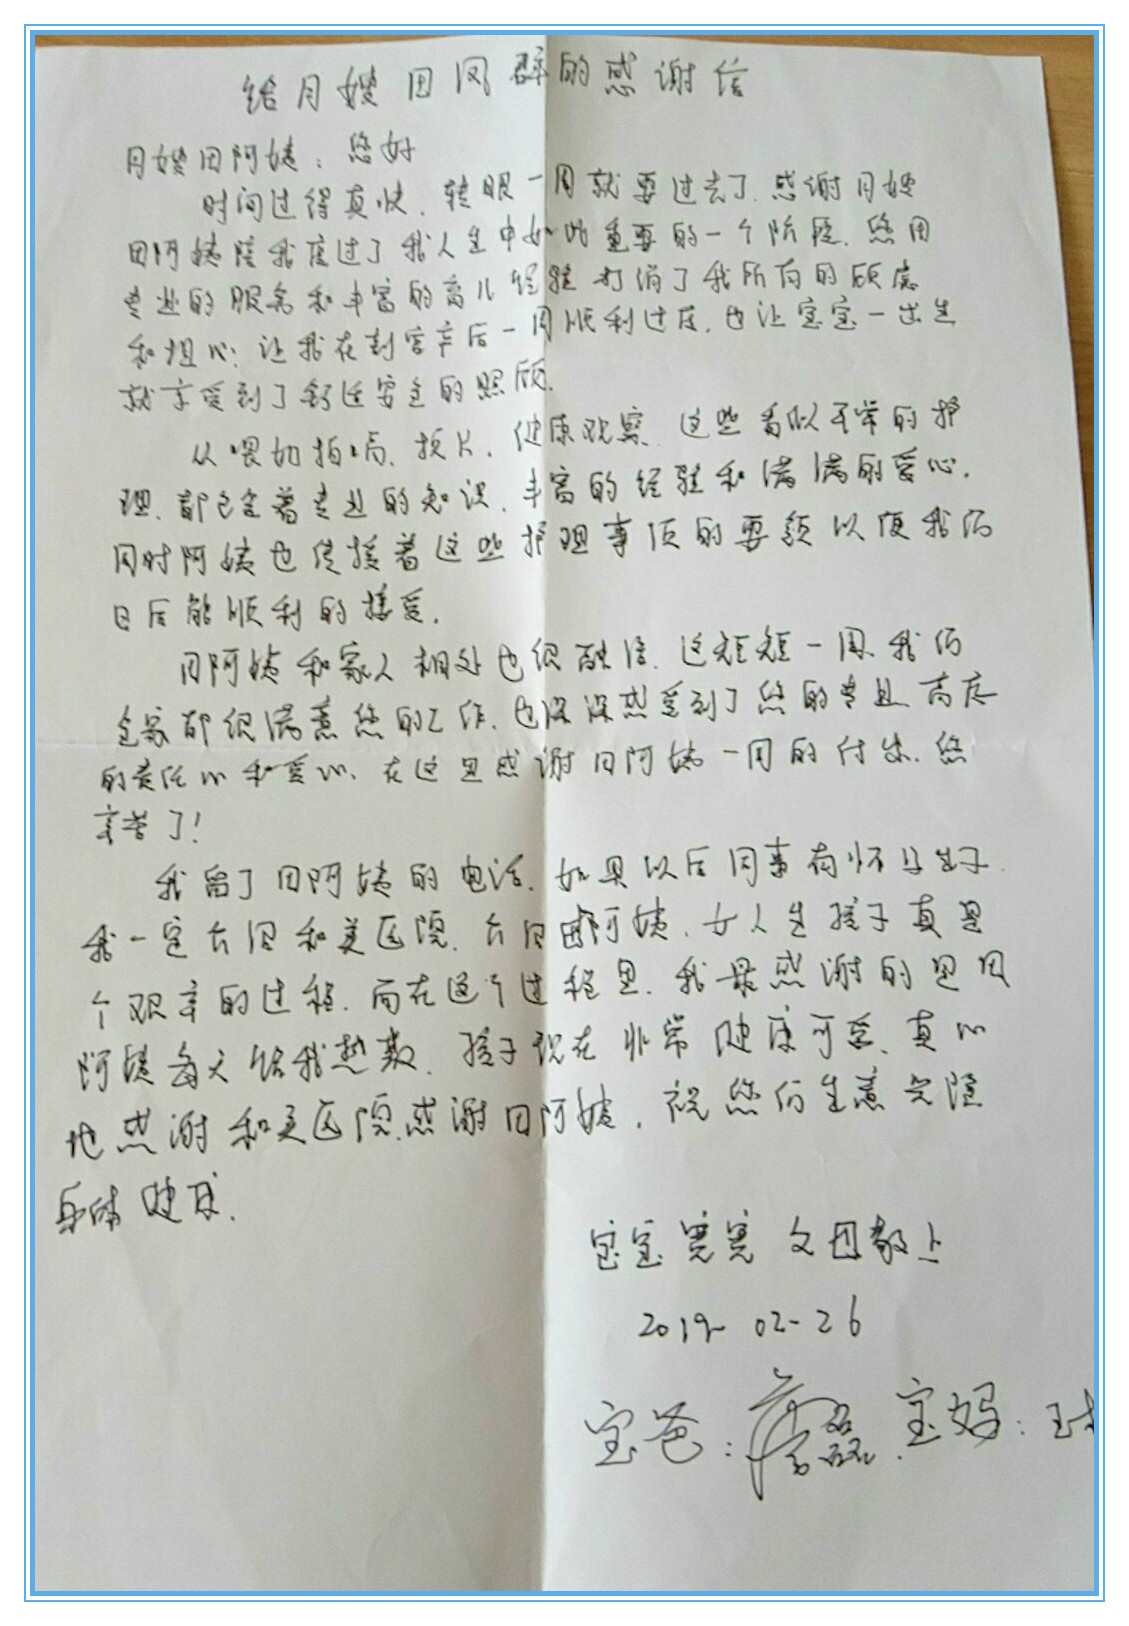 给月嫂田凤群的感谢信
月嫂田阿姨：您好
时间过得真快，转眼一周就要过去了，感谢月嫂
田阿姨陪我度过了我人生中如此重要的一个阶段，您用
专业的服务和丰富的育儿经验打消了我所有的顾虑
和担心；让我在剖宫产后一周顺利过度，也让宝宝一出生
就享受到了舒适安全的照顾。
从喂奶拍嗝、换片、健康观察，这些看似平常的护
理，都包含着专业的知识、丰富的经验和满满的爱心。
同时阿姨也传授着这些护理事项的要领以便我们
日后能顺利的接受。
田阿姨和家人相处也很融洽，这短短一周，我们
全家都很满意您的工作，也深深感受到了您的专业、高度
的责任心和爱心、在这里感谢田阿姨一周的付出，您
辛苦了！
我留了田阿姨的电话，如果以后同事有怀孕生子，
我一定去围和美医院，去用田阿姨，女人生孩子真是
个艰辛的过程，而在这个过程里，我最感谢的是田
阿姨每天给我热敷，孩子现在非常健康可爱、真心
地感谢和美医院，感谢田阿姨，祝您们生意兴隆
身体健康。
宝宝 父母敬上
2019-02-26
宝爸：磊 宝妈：王